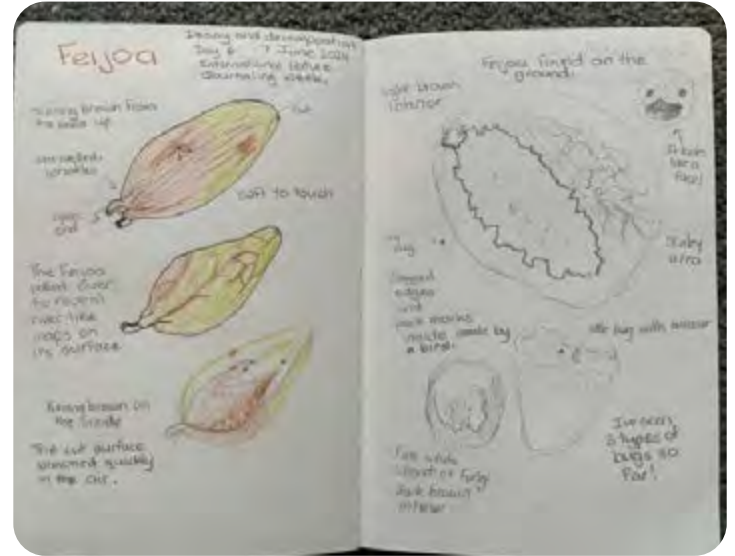 Feijoa
Decay and decomposition
Day 6 7 June 2024
International Nature
Journaling Week
Turning brown from
the base up
wrinkles
Cut
Soft to touch
end
The Feijoa
rolled over
to reveal
river-like
maps on
its surface
Turning brown on
the inside
The cut surface
browned quickly
in the air.
Feijoa found on the
ground.
light brown
interior
It looks
like a
face!
area
Jagged
edges
and
peck marks
inside made by
a bird.
bug with
I've seen
3 types of
bugs so
far!
fungi
Dark brown
interior